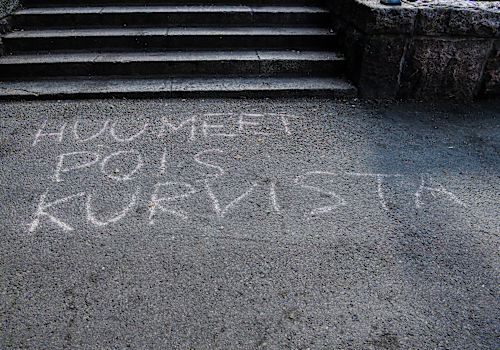 HUUMEET
POIS
KURVISTA